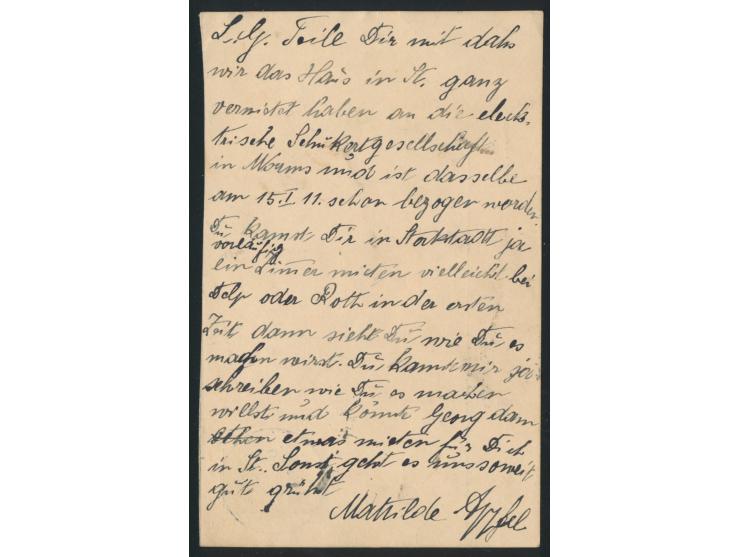 L. G. Teile Dir mit dahs
wir das Haus in St. ganz
vermietet haben an die elek-
trische Schukertgesellschaft
in Worms und ist dasselbe
am 15.I 11. schon bezogen worden.
Du kanst Dir in Stockstadt ja
vorläufig
ein Zimer mieten vielleicht bei
Delp oder Roth in der ersten
Zeit dann sieht Du wie Du es
machen wirst. Du kanst mir ja
schreiben wie Du es machen
willst und könnte Georg dann
etwas mieten für Dich
in St. Sonst geht es uns soweit
gut grüßt
Mathilde Apfel